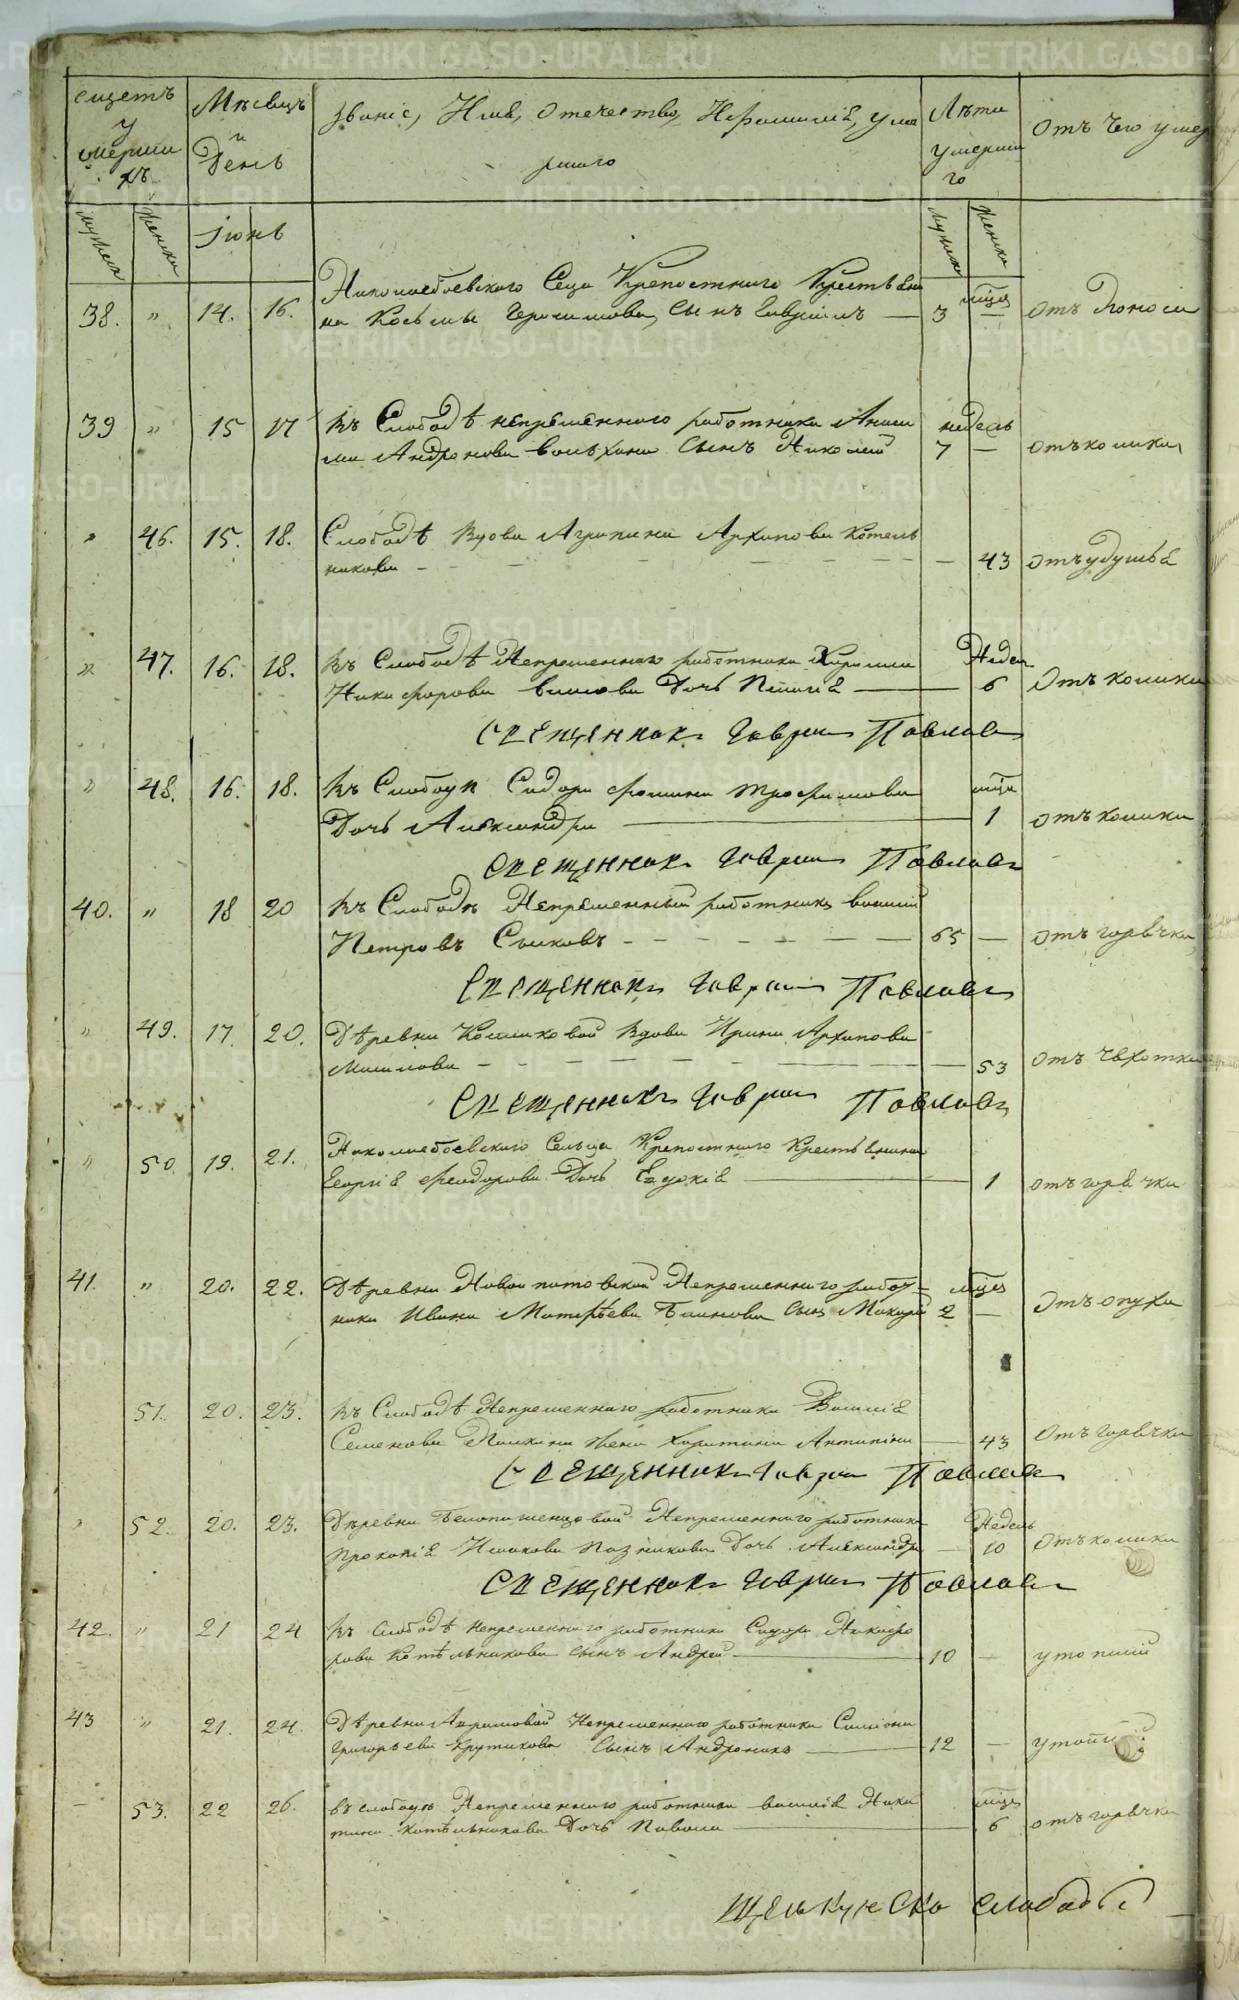 METRIKI.GASO-URAL.RU
Счетъ умершихъ
Мѣсяцъ и День
Званіе, Имя, Отечество, И Фамилія, умершаго
Лѣта умершаго
Отъ чего умер
мужеск женска
Іюнь
мужеска женска
Николаебоевского Селца Крепостного Крестьяни
38. " 14. 16. на Косьмы Герасимова, Сынъ Гавріилъ — 3 мѣсяц — отъ Поноса
39 " 15 17 Въ Слободѣ непременного работника
Андронова сынъ Николай недель 7 — отъ колики
" 46. 15. 18. Слободѣ Вдова Агрипина Архипова Котель
никова — 43 отъ удушья
" 47. 16. 18. Въ Слободѣ Непременнаго работника Кирилла
Никифорова Дочь Пелагія — Недел 6 Отъ колики
Священникъ Гавриил Павловъ
" 48. 16. 18. Въ Слободѣ Сидора Фомина Трофимова
Дочь Александра — мѣсяц 1 отъ колики
Священникъ Гавриил Павловъ
40. " 18 20 Въ Слободѣ Непременный работникъ Василій
Петровъ Сысковъ — 65 — отъ горячки
Священникъ Гавриил Павловъ
" 49. 17 20. Дѣревни Вдова Ирина Архипова
— 53 отъ чахотки
Священникъ Гавриил Павловъ
" 50. 19. 21. Николаебоевского Сельца Крепостного Крестьянина
Георгія Феодорова Дочь Евдокія — 1 отъ горячки
41. " 20. 22. Дѣревни Новоипатовской Непременнаго работ-
ника Ивана Матфѣева Сынъ Макаръ мѣсяц 2 — Отъ опухи
51. 20. 23. Въ Слободѣ Непременнаго работника Василія
Семенова жена Харитина Антипина — 43 Отъ горячки
Священникъ Гавриил Павловъ
" 52. 20. 23. Дѣревни Непременнаго работника
Прокопія Исакова Позникова Дочь Александра — Недель 10 Отъ колики
Священникъ Гавриил Павловъ
42. " 21 24 Въ Слободѣ непременнаго работника Сидора Никифо
рова Котѣльникова сынъ Андрей — 10 — утопшій
43 " 21. 24. Дѣревни Абрамовой Непременнаго работника Симіона
Григорьева Крутикова Сынъ Андроникъ — 12 —
— 53. 22 26. въ слободѣ Непременнаго работника Василія Ники
тина Котѣльникова Дочь Павола — мѣсяц 6 отъ горячки
Щелкунско слабодѣ